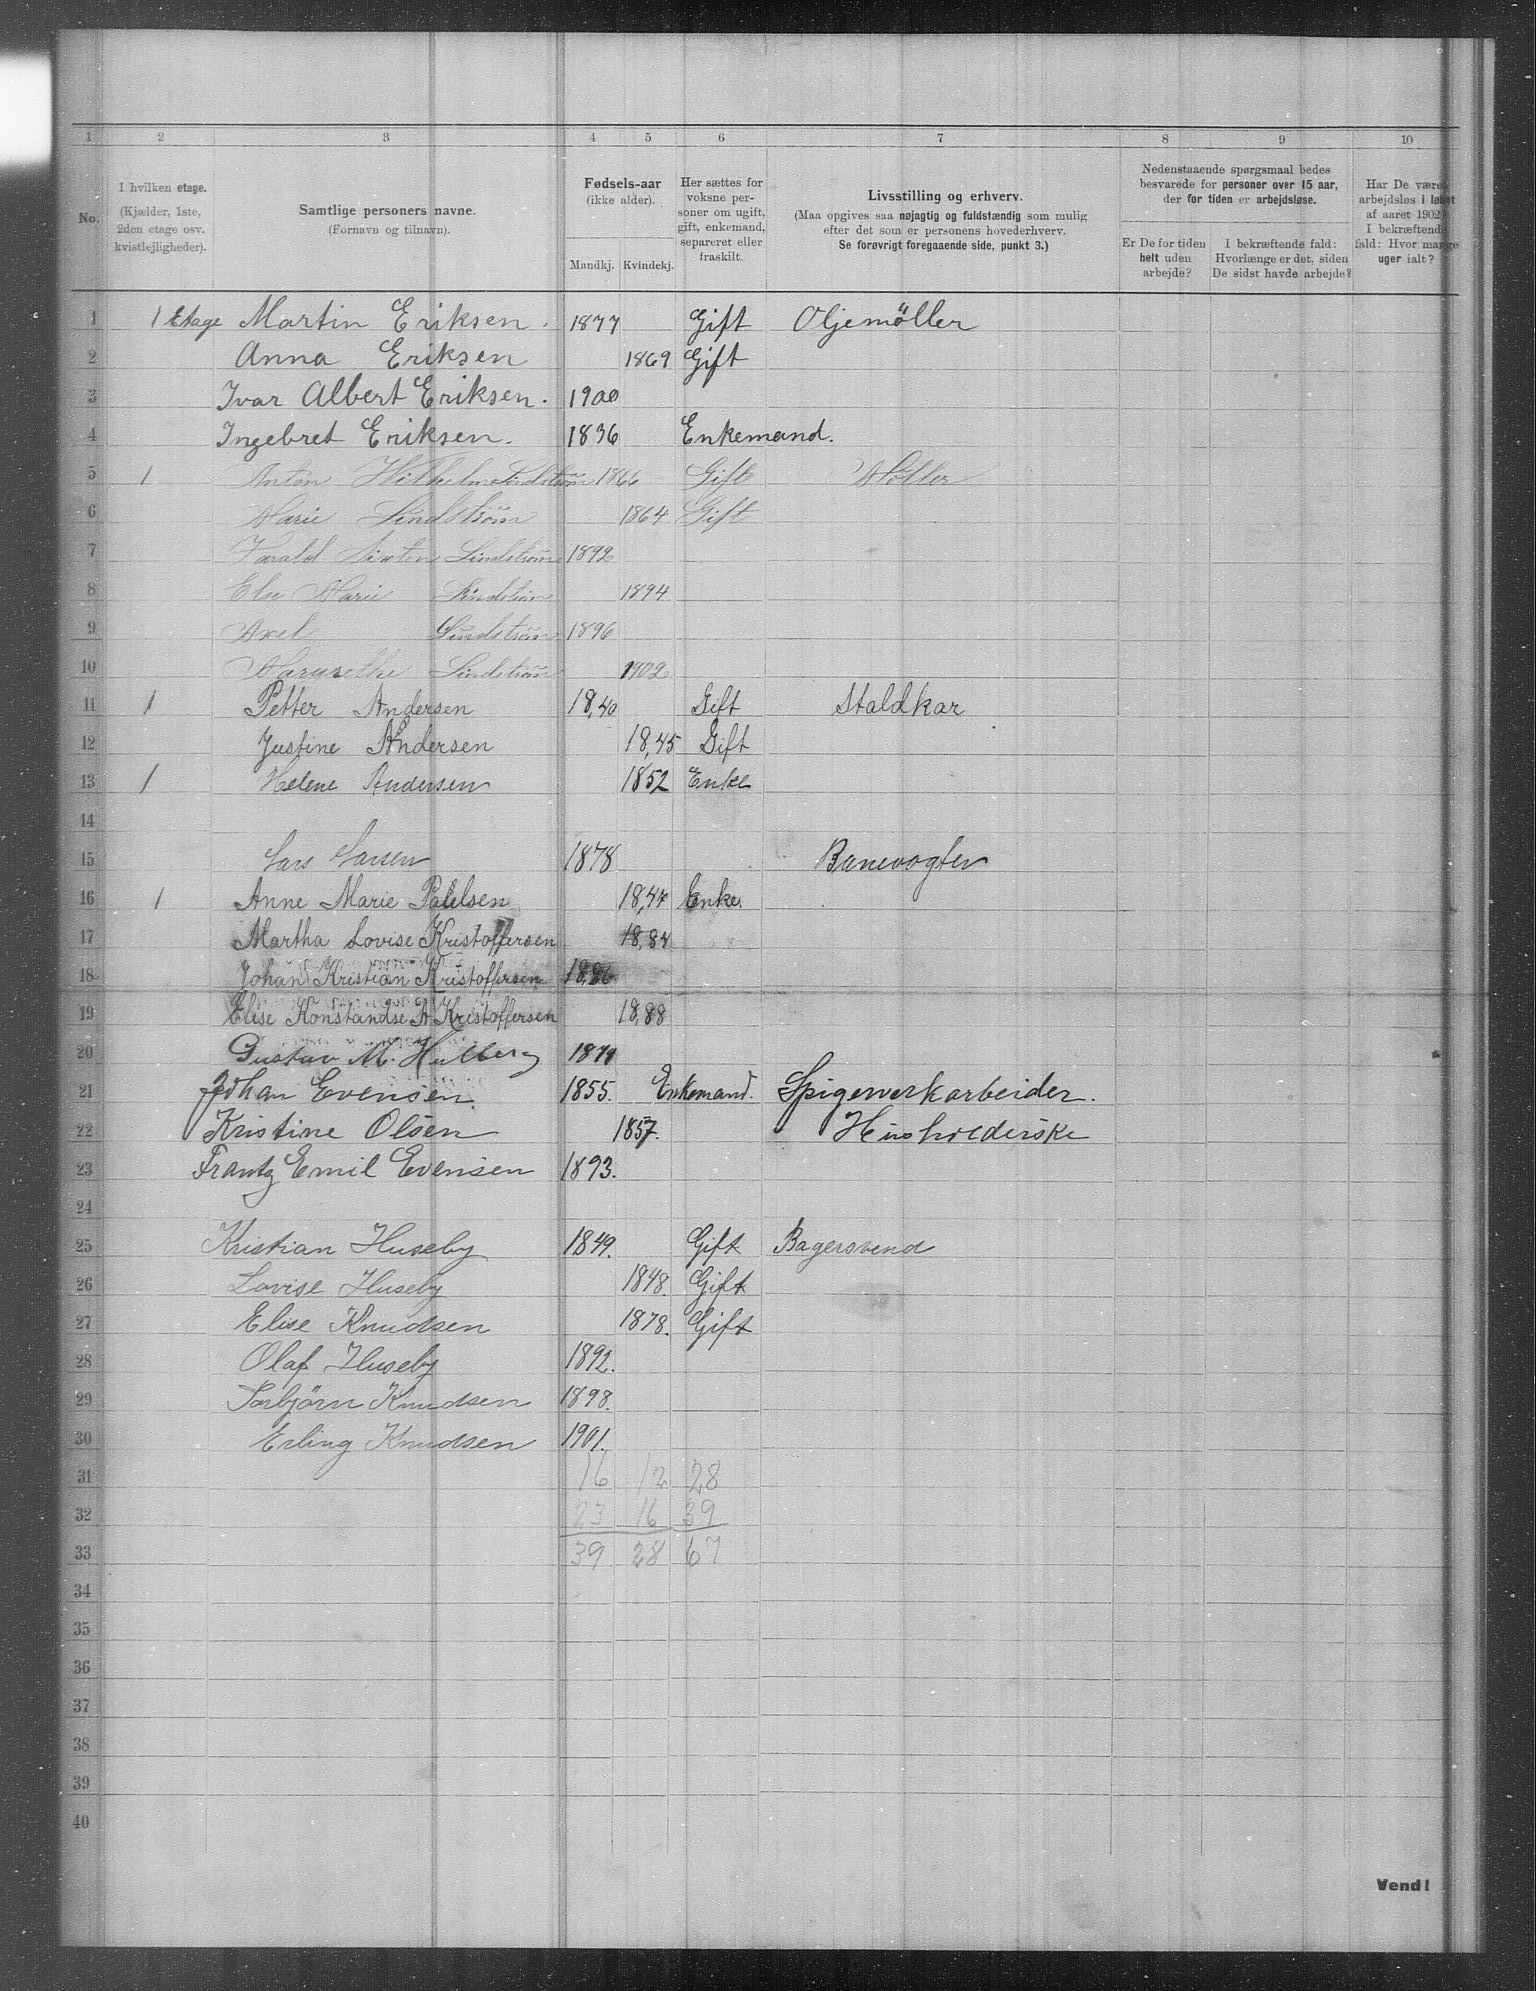 1 2 3 4 5 6 7 8 9 10
No.
I hvilken etage. (Kjælder, 1ste, 2den etage osv. kvistlejligheder).
Samtlige personers navne. (Fornavn og tilnavn).
Fødsels-aar (ikke alder).
Mandkj. Kvindekj.
Her sættes for voksne personer om ugift, gift, enkemand, separeret eller fraskilt.
Livsstilling og erhverv.
(Maa opgives saa nøjagtig og fuldstændig som mulig efter det som er personens hovederhverv.
Se forøvrigt foregaaende side, punkt 3.)
Nedenstaaende spørgsmaal bedes besvarede for personer over 15 aar, der for tiden er arbejdsløse.
Er De for tiden helt uden arbejde?
I bekræftende fald: Hvorlænge er det, siden De sidst havde arbejde?
Har De været arbejdsløs i løbet af aaret 1902? I bekræftende fald: Hvor mange uger ialt?
1 1 Etage Martin Eriksen. 1877 Gift Oljemöller
2 Anna Eriksen 1869 Gift
3 Ivar Albert Eriksen. 1900
4 Ingebret Eriksen. 1836 Enkemand.
5 1 Anton Wilhelm Lindström 1866 Gift Möller
6 Marie Lindström 1864 Gift
7 Harald Sixten Lindström 1892
8 Else Marie Lindström 1894
9 Axel Lindström 1896
10 Margrethe Lindström 1902
11 1 Petter Andersen 18,40 Gift Staldkar
12 Justine Andersen 18,45 Gift
13 1 Helene Andersen 1852 Enke
14
15 Lars Larsen 1878 Banevogter
16 1 Anne Marie Paulsen 18,47 Enke.
17 Martha Lovise Kristoffersen 18,84
18 Johan Kristian Kristoffersen 18,86
19 Elise Konstandse A Kristoffersen 18,88
20 Gustav M. 1879
21 Johan Evensen. 1855. Enkemand. Spigerverkarbeider.
22 Kristine Olsen 1857. Husholderske
23 Frantz Emil Evensen 1893.
24
25 Kristian Huseby 1849. Gift Bagersvend
26 Lovise Huseby 1848. Gift
27 Elise Knudsen 1878. Gift
28 Olaf Huseby 1892.
29 Torbjörn Knudsen 1898.
30 Erling Knudsen 1901.
31 16 12 28
32 23 16 39
33 39 28 67
34
35
36
37
38
39
40
Vend!